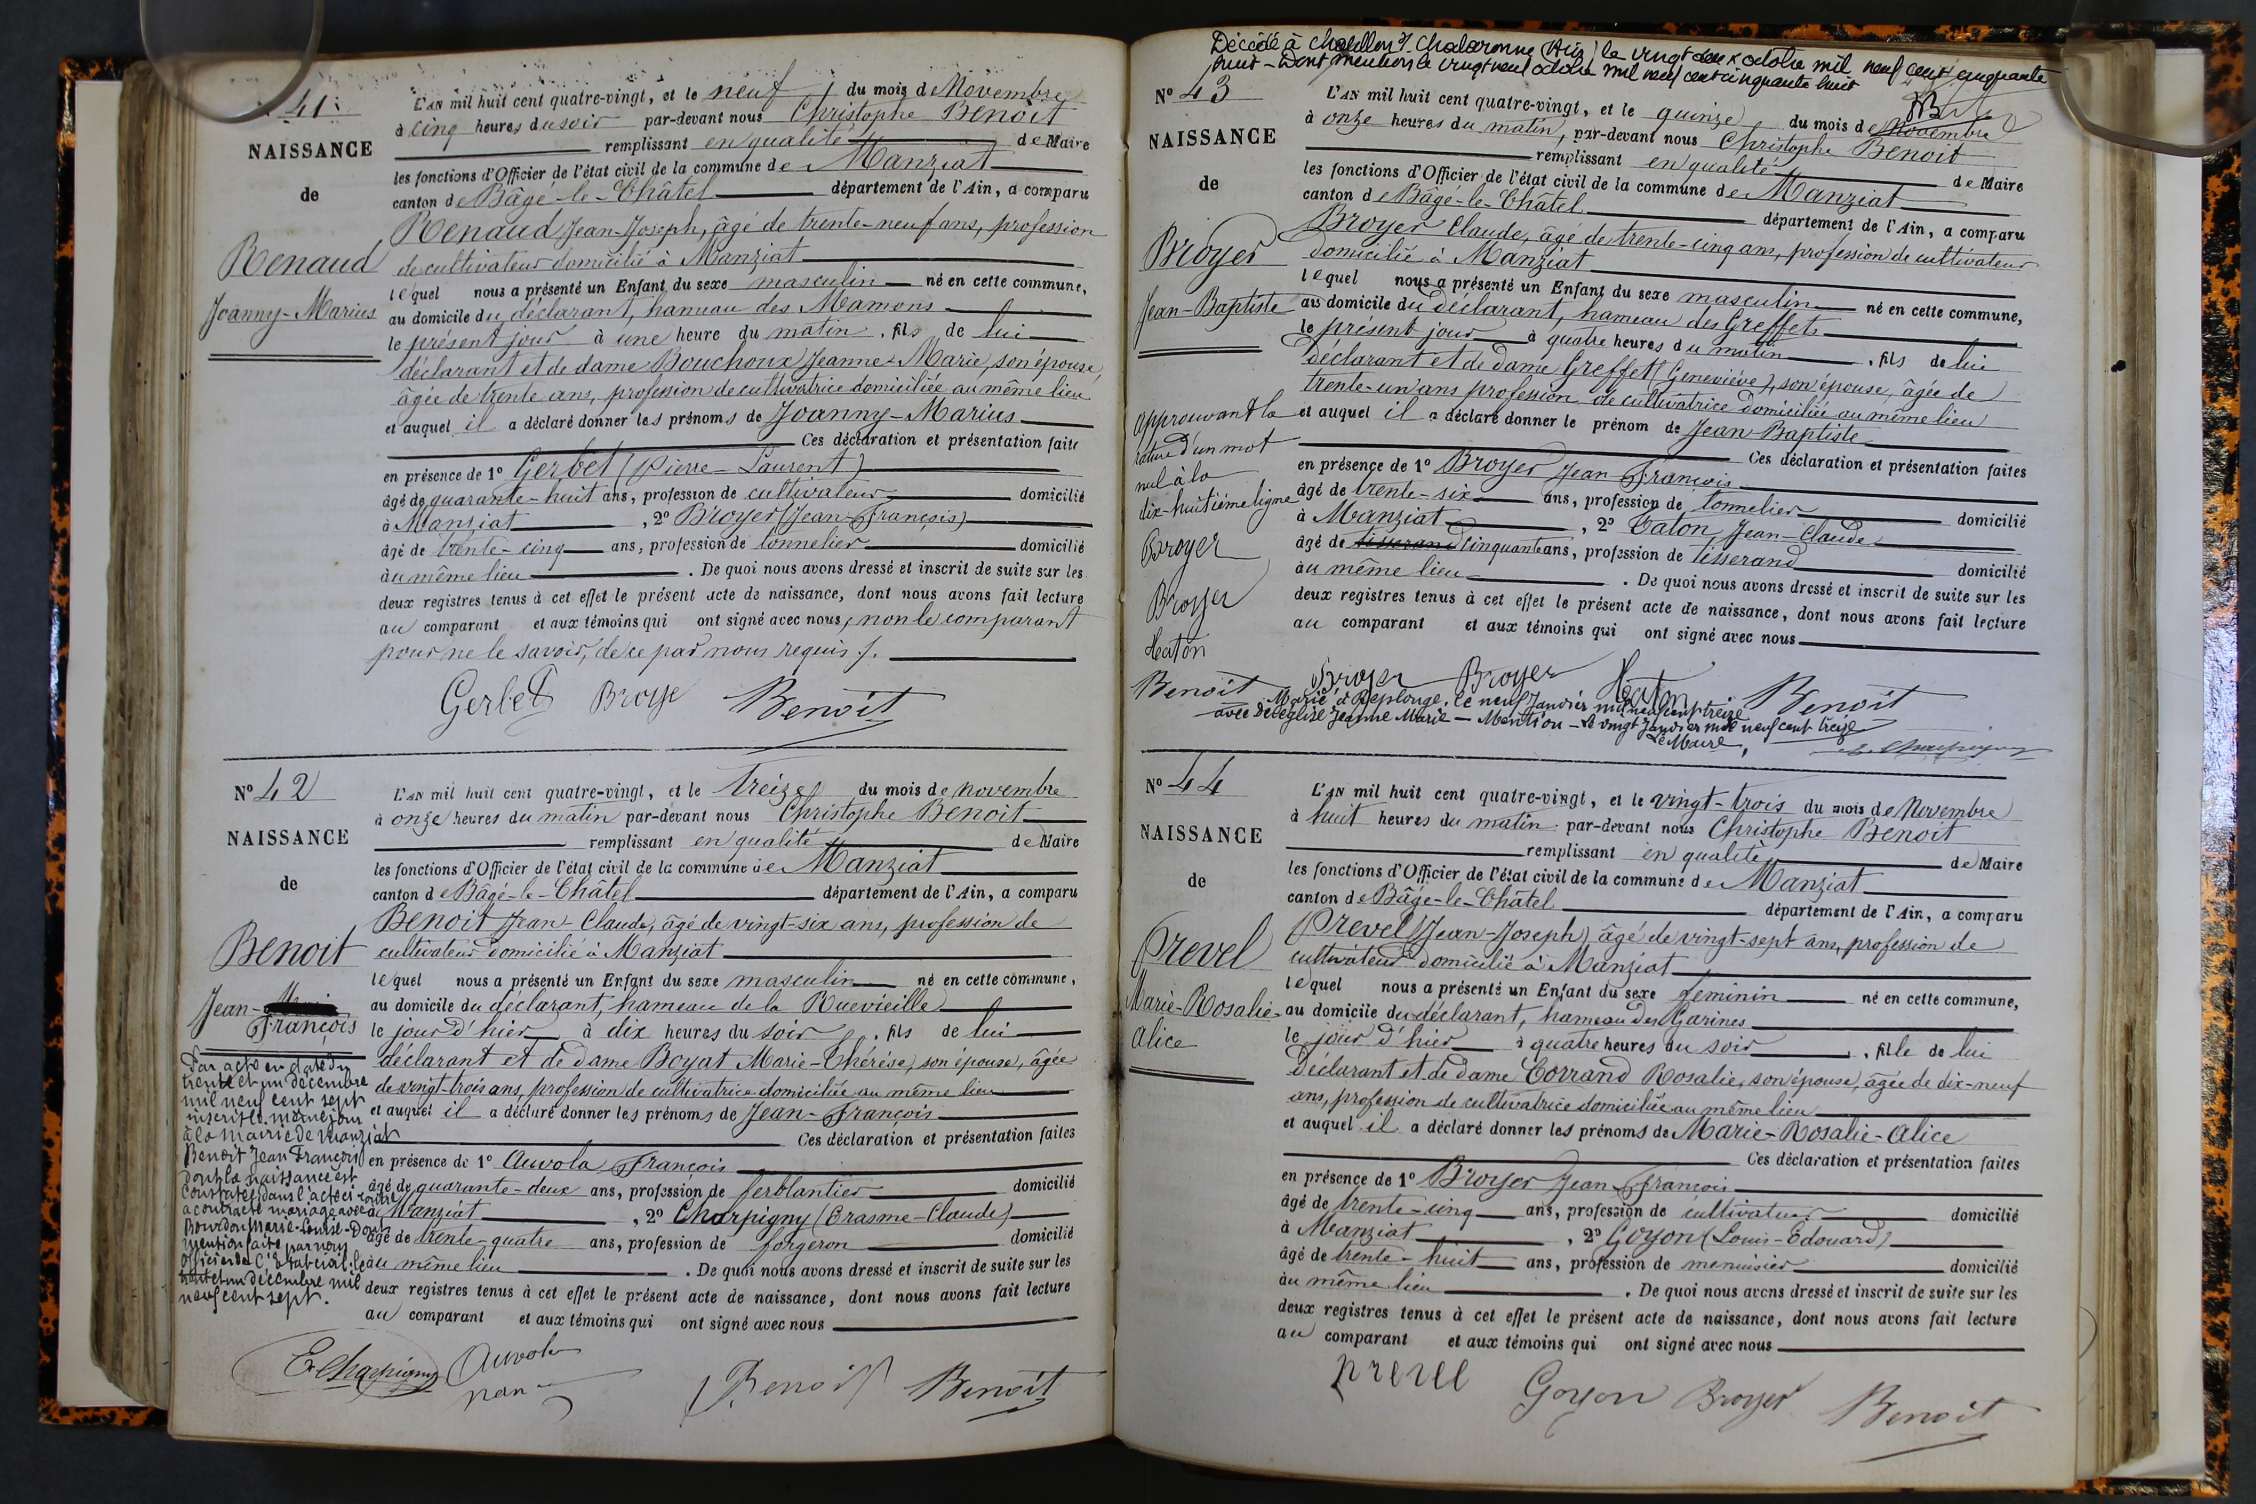 41
NAISSANCE
de
Renaud
Joanny-Marius
L'AN mil huit cent quatre-vingt, et le neuf du mois de Novembre
à cinq heures du soir par-devant nous Christophe Benoit
remplissant en qualité de Maire
les fonctions d'Officier de l'état civil de la commune de Manziat
canton de Bâgé-le-Châtel département de l'Ain, a comparu
Renaud Jean-Joseph, âgé de trente-neuf ans, profession
de cultivateur domicilié à Manziat
lequel nous a présenté un Enfant du sexe masculin né en cette commune,
au domicile du déclarant, hameau des Mamons
le présent jour à une heure du matin, fils de lui
déclarant et de dame Bouchoux Jeanne-Marie, son épouse,
âgée de trente ans, profession de cultivatrice domiciliée au même lieu
et auquel il a déclaré donner les prénoms de Joanny-Marius
Ces déclaration et présentation faite
en présence de 1° Gerbet (Pierre-Laurent)
âgé de quarante-huit ans, profession de cultivateur domicilié
à Manziat, 2° Broyer (Jean-François)
âgé de trente-cinq ans, profession de tonnelier domicilié
au même lieu. De quoi nous avons dressé et inscrit de suite sur les
deux registres tenus à cet effet le présent acte de naissance, dont nous avons fait lecture
au comparant et aux témoins qui ont signé avec nous, non le comparant
pour ne le savoir, de ce par nous requis ./.
Gerbet Broye Benoit
N° 42
NAISSANCE
de
Benoit
Jean-
François
Par acte en date du
trente et un décembre
mil neuf cent sept
inscrit le même jour
à la mairie de Manziat
Benoit Jean François
dont la naissance est
constatée dans l'acte ci contre
a contracté mariage avec
Bourdon Marie-Louise-Dont
mention faite par nous
officier de l'Etat civil le
trente et un décembre mil
neuf cent sept.
L'AN mil huit cent quatre-vingt, et le treize du mois de novembre
à onze heures du matin par-devant nous Christophe Benoit
remplissant en qualité de Maire
les fonctions d'Officier de l'état civil de la commune de Manziat
canton de Bâgé-le-Châtel département de l'Ain, a comparu
Benoit Jean-Claude, âgé de vingt-six ans, profession de
cultivateur domicilié à Manziat
lequel nous a présenté un Enfant du sexe masculin né en cette commune,
au domicile du déclarant, hameau de la Ruevieille
le jour d'hier à dix heures du soir, fils de lui
déclarant et de dame Boyat Marie-Thérèse, son épouse, âgée
de vingt-trois ans, profession de cultivatrice domiciliée au même lieu
et auquel il a déclaré donner les prénoms de Jean-François
Ces déclaration et présentation faites
en présence de 1° Auvola François
âgé de quarante-deux ans, profession de ferblantier domicilié
à Manziat, 2° Charpigny (Erasme-Claude)
âgé de trente-quatre ans, profession de forgeron domicilié
au même lieu. De quoi nous avons dressé et inscrit de suite sur les
deux registres tenus à cet effet le présent acte de naissance, dont nous avons fait lecture
au comparant et aux témoins qui ont signé avec nous
E Charpigny Auvola Benoit Benoit
Décédé à Chatillon s/ Chalaronne (Ain) le vingt deux octobre mil neuf cent cinquante
huit - Dont mention le vingt neuf octobre mil neuf cent cinquante huit
N° 43
NAISSANCE
de
Broyer
Jean-Baptiste
approuvant la
rature d'un mot
nul à la
dix-huitième ligne
Broyer
Broyer
Caton
Benoit
L'AN mil huit cent quatre-vingt, et le quinze du mois de novembre
à onze heures du matin, par-devant nous Christophe Benoit
remplissant en qualité de Maire
les fonctions d'Officier de l'état civil de la commune de Manziat
canton de Bâgé-le-Châtel département de l'Ain, a comparu
Broyer Claude, âgé de trente-cinq ans, profession de cultivateur
domicilié à Manziat
lequel nous a présenté un Enfant du sexe masculin né en cette commune,
au domicile du déclarant, hameau des Greffets
le présent jour à quatre heures du matin, fils de lui
déclarant et de dame Greffet (Geneviève), son épouse, âgée de
trente-un ans profession de cultivatrice domiciliée au même lieu
et auquel il a déclaré donner le prénom de Jean-Baptiste
Ces déclaration et présentation faites
en présence de 1° Broyer Jean François
âgé de trente-six ans, profession de tonnelier domicilié
à Manziat, 2° Caton Jean-Claude
âgé de tisserand cinquante ans, profession de tisserand domicilié
au même lieu. De quoi nous avons dressé et inscrit de suite sur les
deux registres tenus à cet effet le présent acte de naissance, dont nous avons fait lecture
au comparant et aux témoins qui ont signé avec nous
Broyer Broyer Caton Benoit
Marié à Replonge, le neuf Janvier mil neuf cent treize
avec Deléglise Jeanne Marie - Mention - Le vingt Janvier mil neuf cent treize
Le Maire,
N° 44
NAISSANCE
de
Prevel
Marie-Rosalie-
Alice
L'AN mil huit cent quatre-vingt, et le vingt-trois du mois de Novembre
à huit heures du matin par-devant nous Christophe Benoit
remplissant en qualité de Maire
les fonctions d'Officier de l'état civil de la commune de Manziat
canton de Bâgé-le-Châtel département de l'Ain, a comparu
Prevel (Jean-Joseph) âgé de vingt-sept ans, profession de
cultivateur domicilié à Manziat
lequel nous a présenté un Enfant du sexe féminin né en cette commune,
au domicile du déclarant, hameau des Garines
le jour d'hier à quatre heures du soir, fille de lui
déclarant et de dame Corrand Rosalie, son épouse, âgée de dix-neuf
ans, profession de cultivatrice domiciliée au même lieu
et auquel il a déclaré donner les prénoms de Marie-Rosalie-Alice
Ces déclaration et présentation faites
en présence de 1° Broyer Jean François
âgé de trente-cinq ans, profession de cultivateur domicilié
à Manziat, 2° Goyon (Louis-Edouard)
âgé de trente-huit ans, profession de menuisier domicilié
au même lieu. De quoi nous avons dressé et inscrit de suite sur les
deux registres tenus à cet effet le présent acte de naissance, dont nous avons fait lecture
au comparant et aux témoins qui ont signé avec nous
prevel Goyon Broyer Benoit